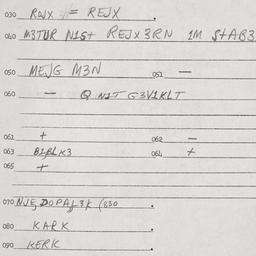 030 RQJX ≠ REJX .
040 M3TUR N1S+ REJX3RN 1M S+AB3
050 MEJG M3N 051 —
060 — Q N1T G3V1KLT
061 + 062 —
063 B1BLK3 064 +
065 +
070 (830 .
080 KARK .
090 KERK .